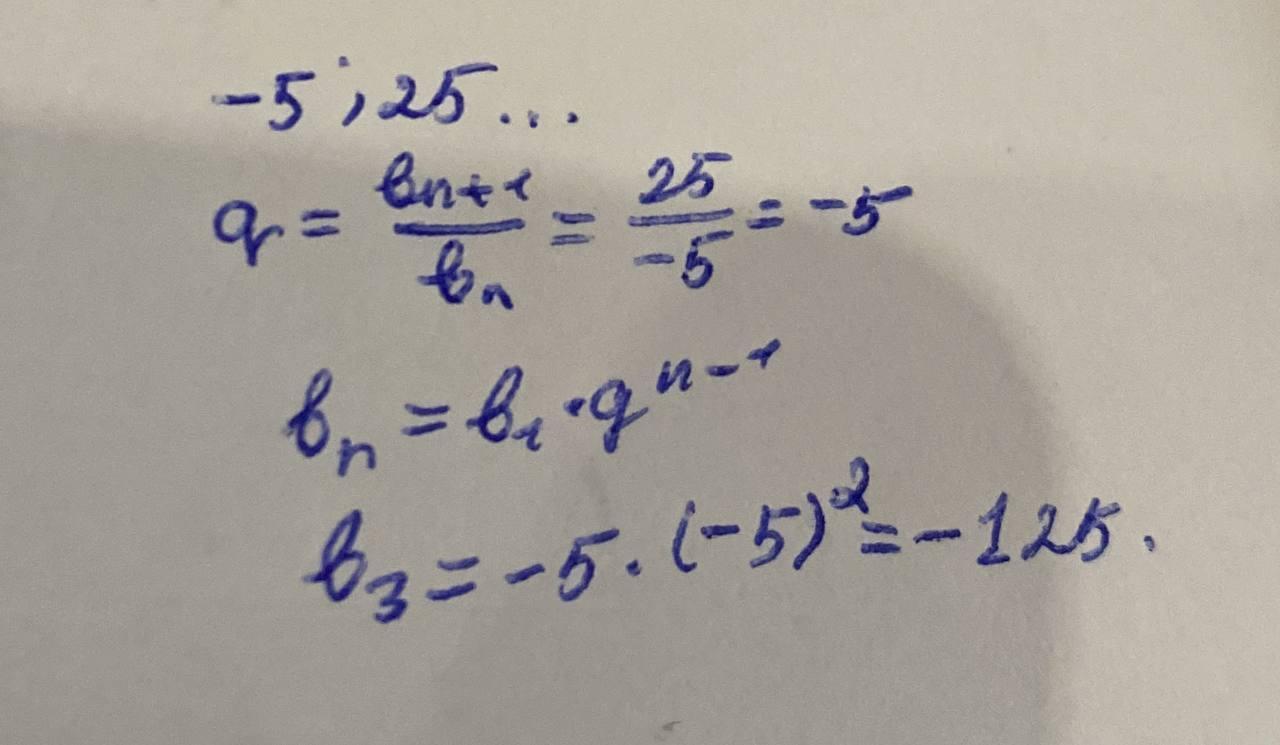 -5; 25...
q = bn+1/bn = 25/-5 = -5
bn = b1 · q^n-1
b3 = -5 · (-5)^2 = -125.